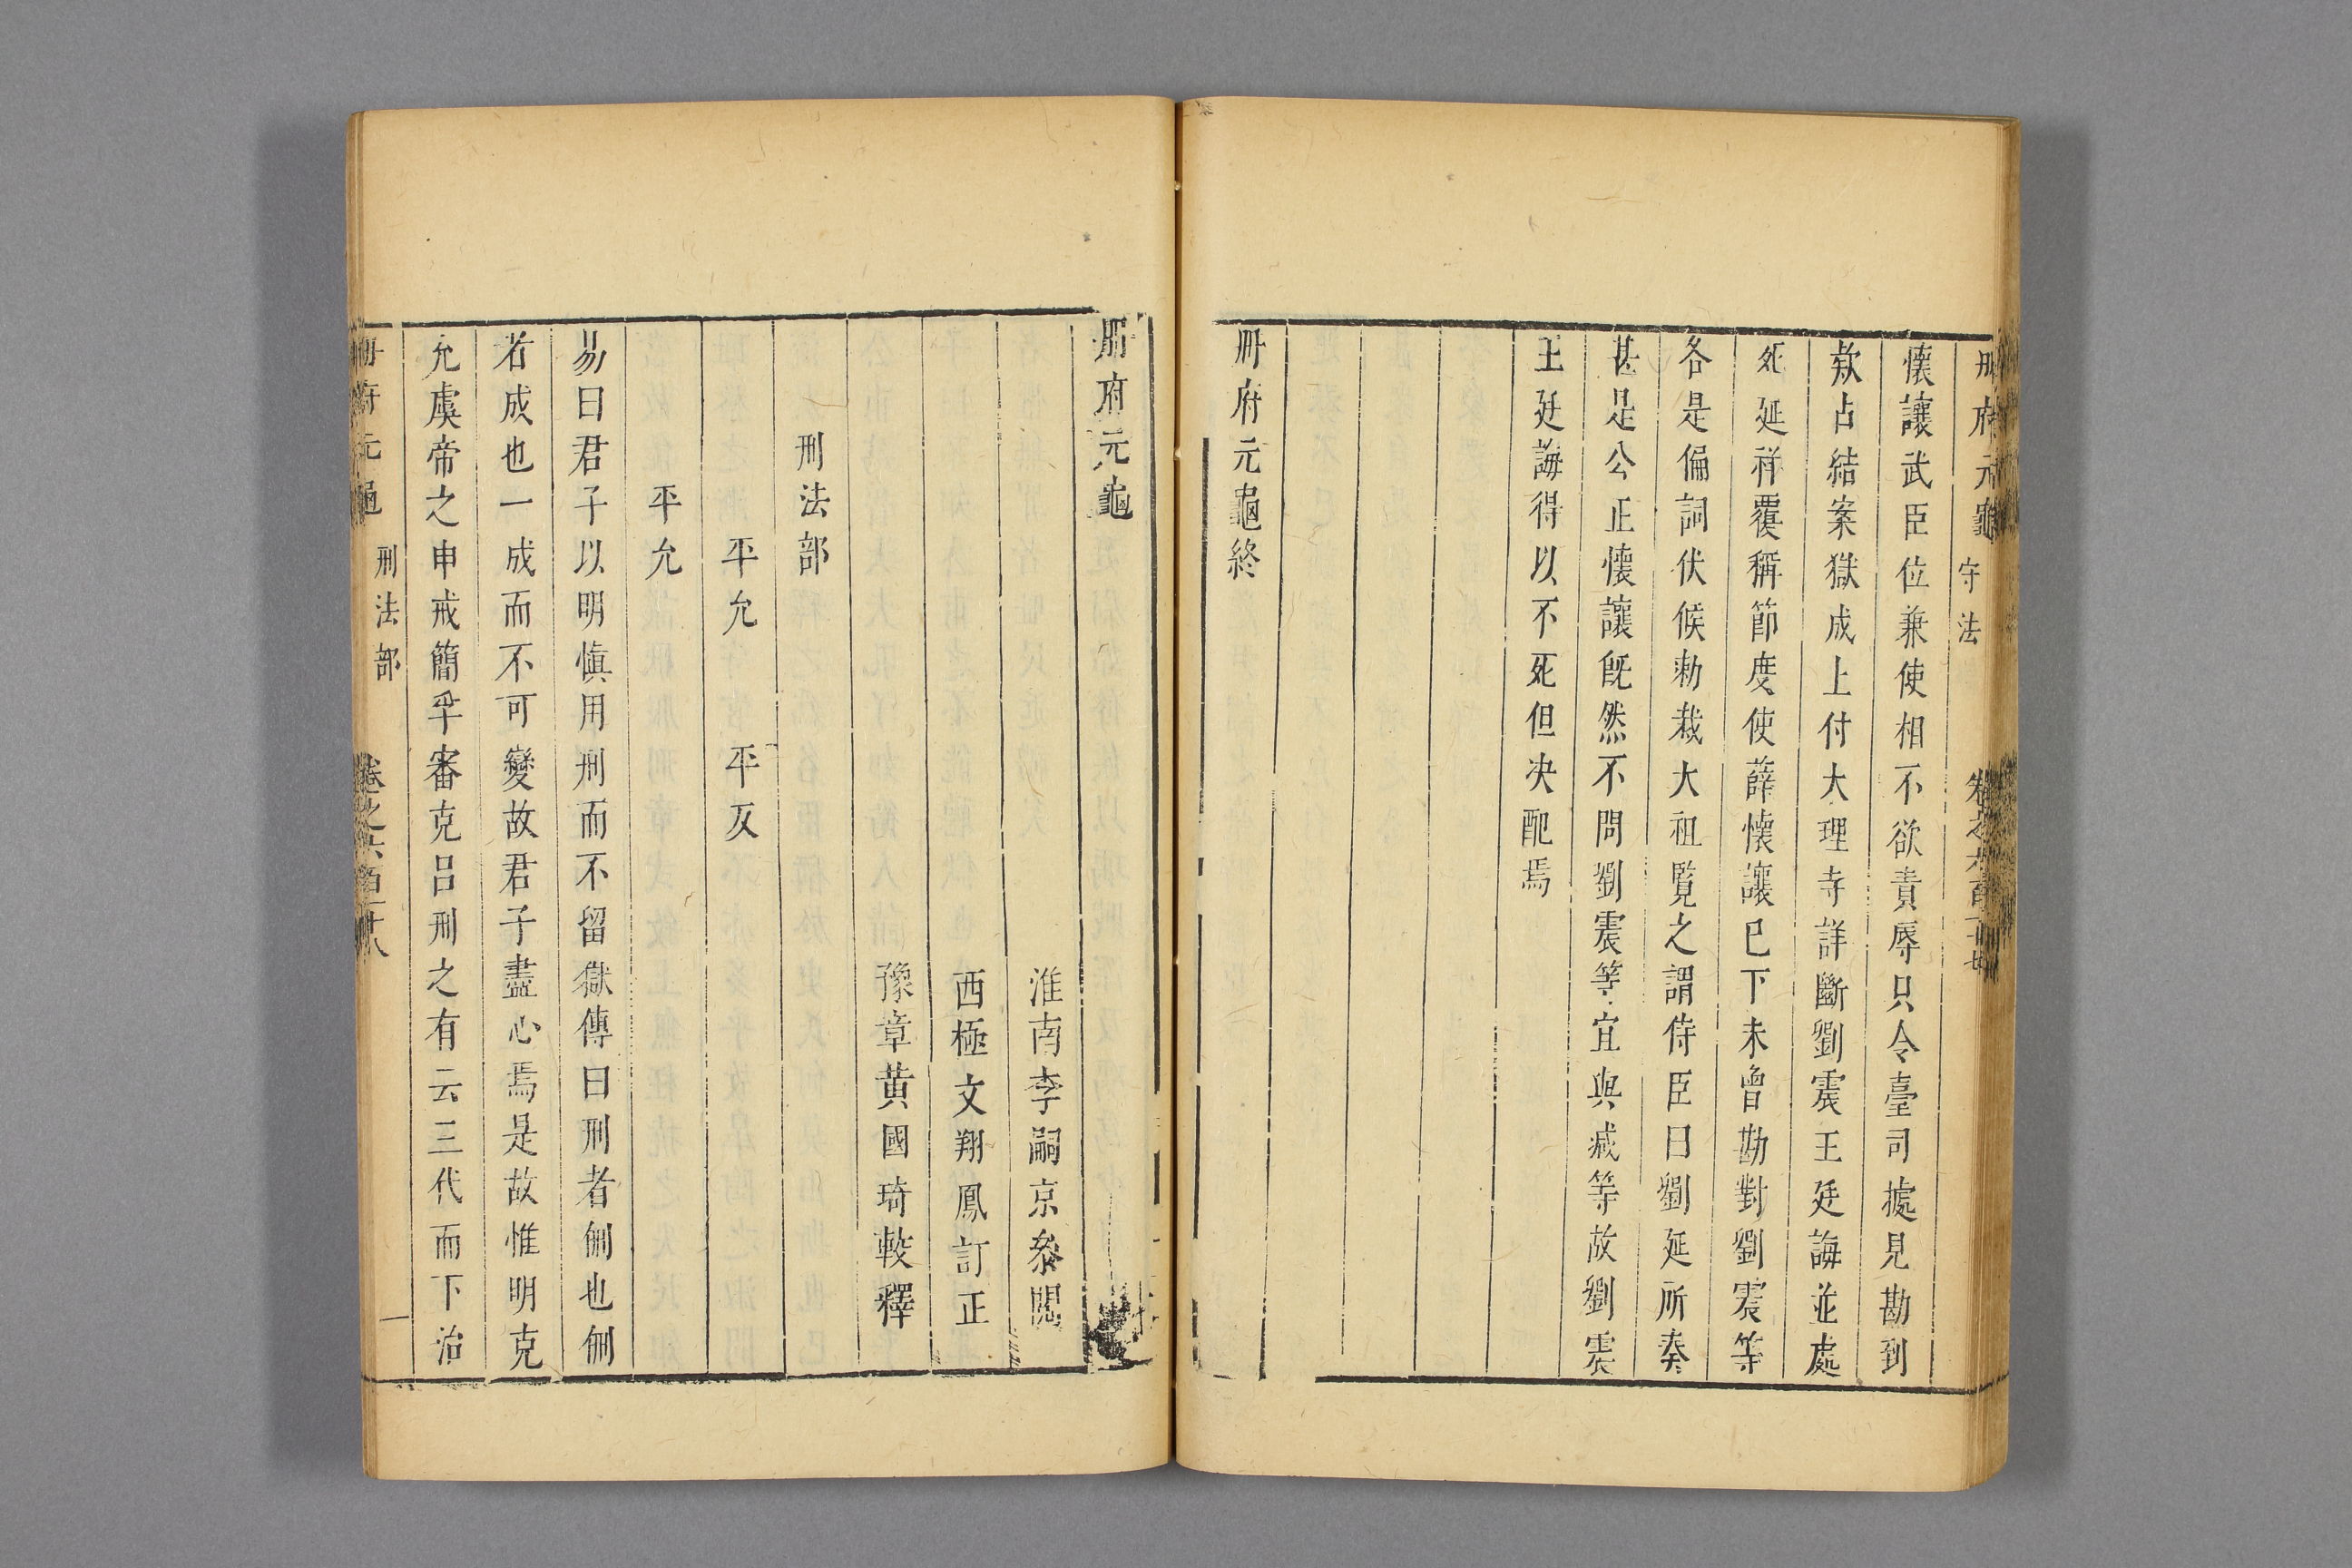 冊府元龜 守法 卷之六百十七
懷讓武臣位兼使相不欲責辱只令臺司據見勘到
欵占結案獄成上付大理寺詳斷劉震王廷誨並處
死延祥覆稱節度使薛懷讓已下未曾勘對劉震等
各是偏詞伏候勅裁大祖覽之謂侍臣曰劉延所奏
甚是公正懷讓旣然不問劉震等宜與減等故劉震
王廷誨得以不死但決配焉
冊府元龜終
冊府元龜
淮南李嗣京叅閱
西極文翔鳳訂正
豫章黃國琦較釋
刑法部
平允 平反
平允
易曰君子以明慎用刑而不留獄傳曰刑者侀也侀
若成也一成而不可變故君子盡心焉是故惟明克
允虞帝之申戒簡孚審克呂刑之有云三代而下治
冊府元龜 刑法部 卷之六百十八 一